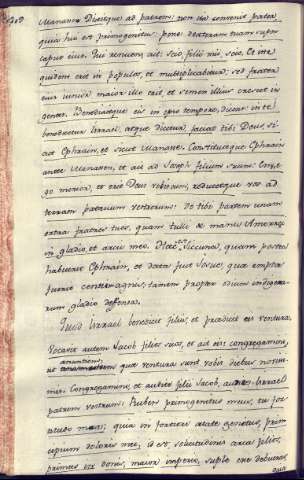 Manassen. Dixitque ad patrem: non ita convenit pater,
quia hic est primogenitus: pone dexteram tuam super
caput eius. Qui renuens, ait: scio fili mi, scio. Et iste
quidem erit in populos, et multiplicabitur: sed frater
eius iunior maior illo erit, et semen illius crescet in
gentes. Benedixitque eis in ipso tempore, dicens: in te
benedicetur Israel, atque dicetur, faciat tibi Deus, si-
cut Ephraim, et sicut Manasse. Constituitque Ephraim
ante Manassen, et ait ad Joseph filium suum: En e-
go morior, et erit Deus vobiscum, reducetque vos ad
terram patrum vestrorum: do tibi partem unam
extra fratres tuos, quam tuli de manu Amorrhæi
in gladio et arcu meo. Sicima, quam postea
habuerunt Ephraim, et data fuit Josue, quæ empta
fuerat centum agnis; tamen propter odium indigena-
rum gladio defensa.
Quod Israel benedixit filiis, et prædixit eis ventura.
Vocavit autem Jacob filios suos, et ait eis: congregamini,
ut annuntiem quæ ventura sunt vobis diebus novissi-
mis. Congregamini, et audite filii Jacob, audite Israel
patrem vestrum: Ruben primogenitus meus, tu for-
titudo mea; quia in fortiori ætate genitus, prin-
cipium doloris mei, id est, solicitudinis circa filios,
primus in donis, maior imperio, supple esse debueras,